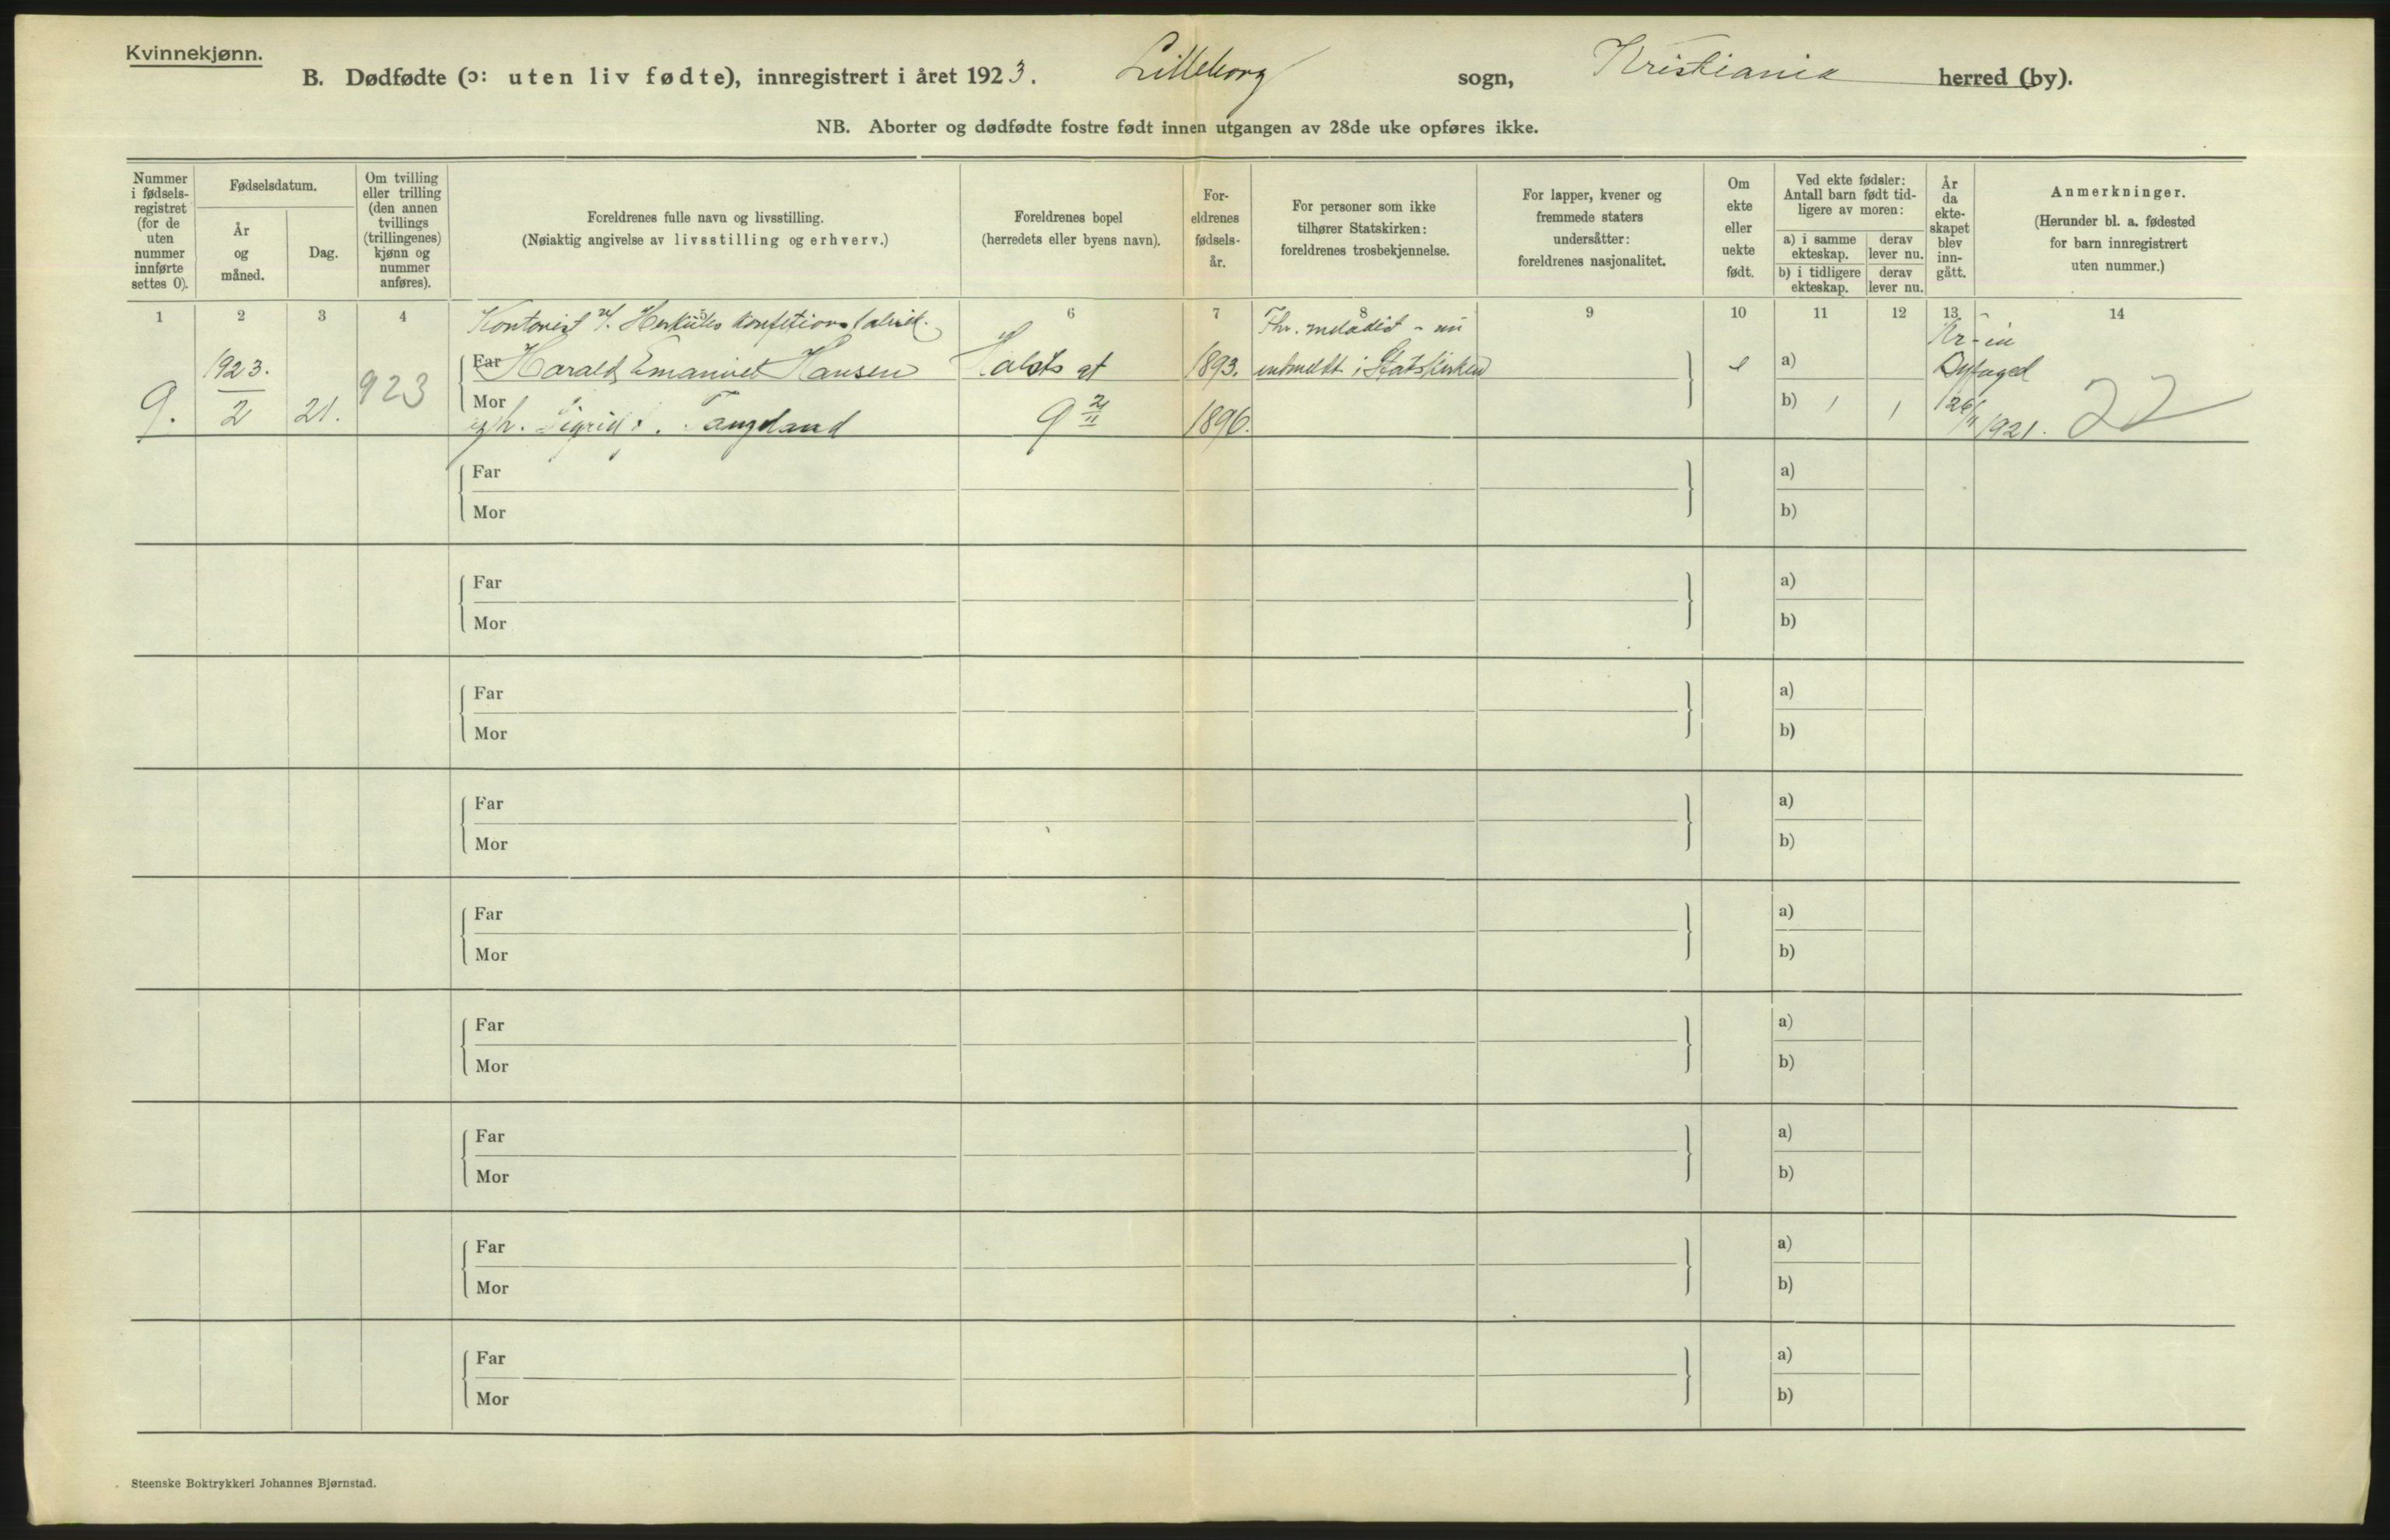 Kvinnekjønn.
B. Dødfødte (ɔ: uten liv fødte), innregistrert i året 1923. Lilleborg sogn, Kristiania herred (by).
NB. Aborter og dødfødte fostre født innen utgangen av 28de uke opføres ikke.
Nummer i fødsels- registret (for de uten nummer innførte settes 0).
Fødselsdatum.
År og måned.
Dag.
Om tvilling eller trilling (den annen tvillings (trillingenes) kjønn og nummer anføres).
Foreldrenes fulle navn og livsstilling.
(Nøiaktig angivelse av livsstilling og erhverv.)
Foreldrenes bopel
(herredets eller byens navn).
For- eldrenes fødsels- år.
For personer som ikke
tilhører Statskirken:
foreldrenes trosbekjennelse.
For lapper, kvener og
fremmede staters
undersåtter:
foreldrenes nasjonalitet.
Om ekte eller uekte født.
Ved ekte fødsler:
Antall barn født tid-
ligere av moren:
a) i samme ekteskap.
derav lever nu.
b) i tidligere ekteskap.
derav lever nu.
År da ekte- skapet blev inn- gått.
Anmerkninger.
(Herunder bl. a. fødested
for barn innregistrert
uten nummer.)
1 2 3 4 6 7 8 9 10 11 12 13 14
Kontorist v/. Herkules
Fhv. - nu
Kr-ia
1923. 923 Far Harald Emanuel Hansen Holsts gt 1893. indmeldt i Statskirken e a) Byfoged
9. 2 21. Mor Sigrid Tangeland 9 2/II 1896. b) 1 1 26/11 1921. 22
Far a)
Mor b)
Far a)
Mor b)
Far a)
Mor b)
Far a)
Mor b)
Far a)
Mor b)
Far a)
Mor b)
Far a)
Mor b)
Far a)
Mor b)
Far a)
Mor b)
Steenske Boktrykkeri Johannes Bjørnstad.